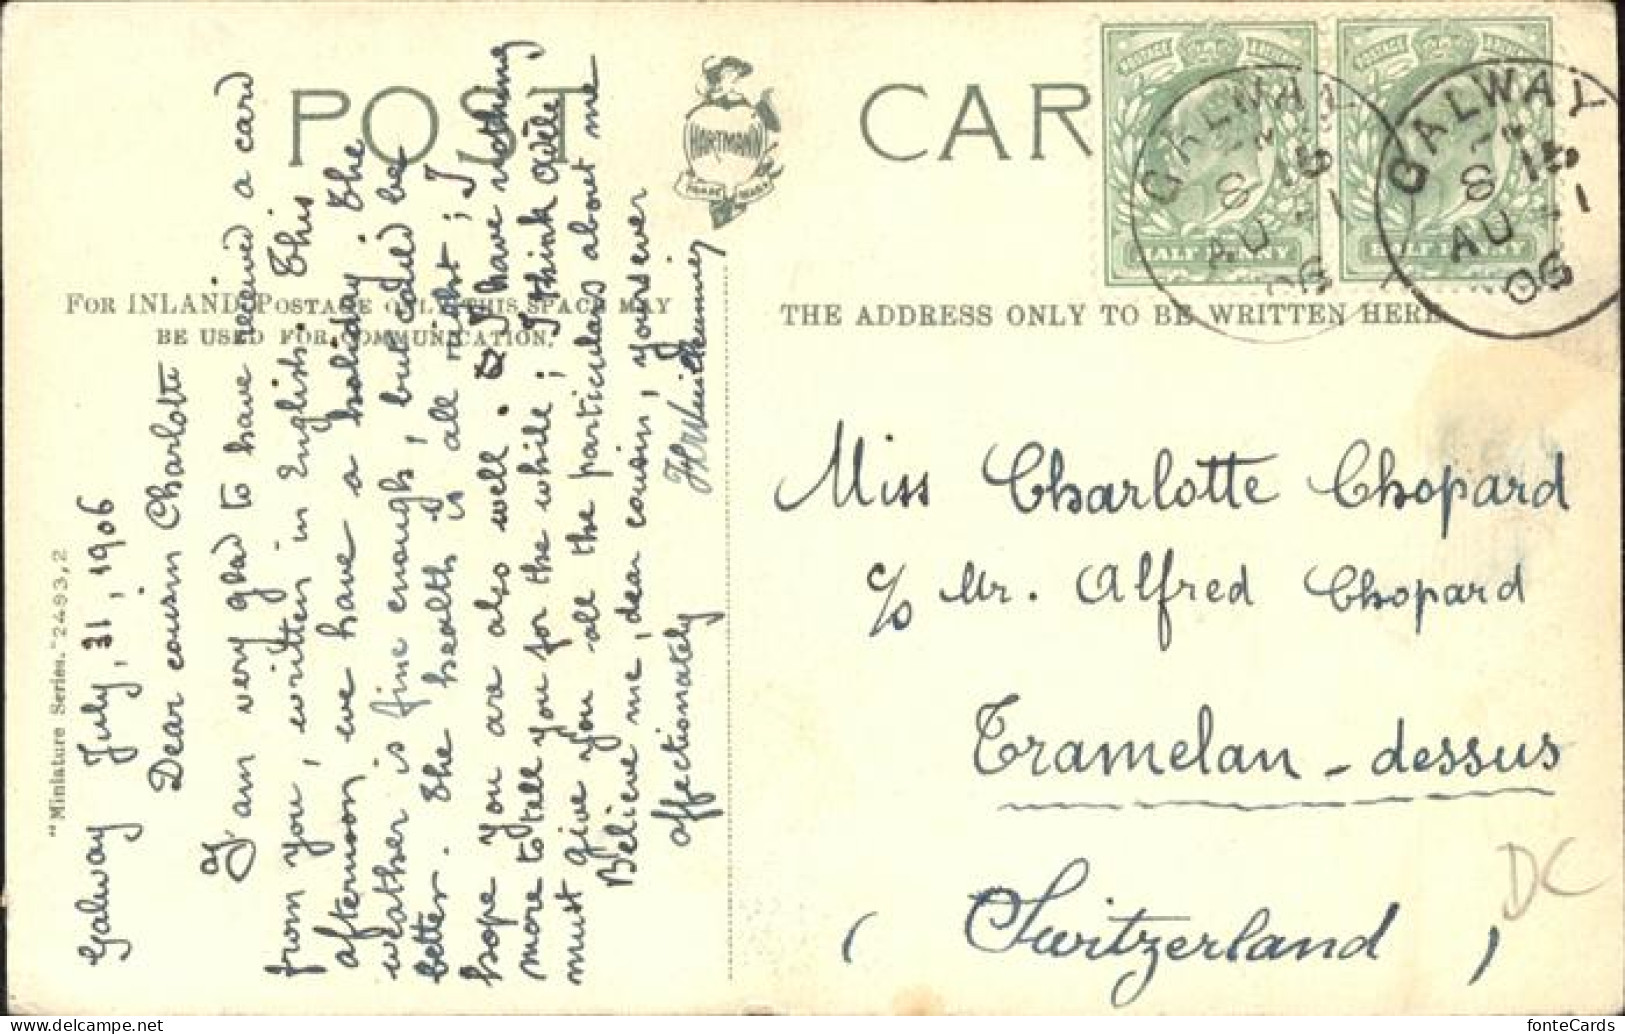 POST CARD
HARTMANN
TRADE MARK
POSTAGE REVENUE
HALFPENNY
POSTAGE REVENUE
HALFPENNY
GALWAY
8 15
AU 1
06
GALWAY
8 15
AU 1
06
FOR INLAND POSTAGE ONLY THIS SPACE MAY
BE USED FOR COMMUNICATION.
THE ADDRESS ONLY TO BE WRITTEN HERE
"Miniature Series." 2493,2
Galway July, 31, 1906
Dear cousin Charlotte
I am very glad to have received a card
from you, written in English. This
afternoon we have a holiday. The
weather is fine enough, but could be
better. The health is all right; I
hope you are also well. I have nothing
more to tell you for the while; I think Adèle
must give you all the particulars about me
Believe me, dear cousin, yours ever
affectionately
Miss Charlotte Chopard
c/o Mr. Alfred Chopard
Tramelan-dessus
(Switzerland)
DC
fonteCards